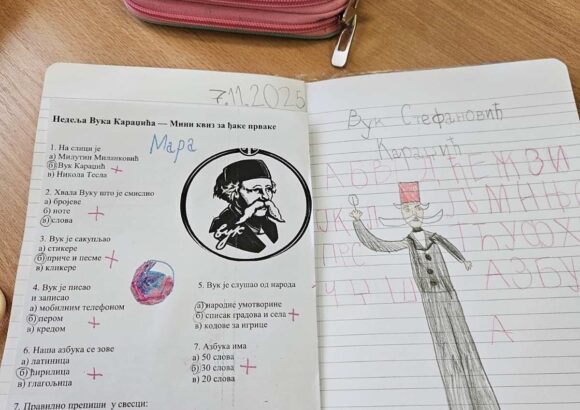 7.11.2025
Недеља Вука Караџића — Мини квиз за ђаке прваке
Мара
1. На слици је
а) Милутин Миланковић
б) Вук Караџић
в) Никола Тесла
2. Хвала Вуку што је смислио
а) бројеве
б) ноте
в) слова
3. Вук је сакупљао
а) стикере
б) приче и песме
в) кликере
4. Вук је писао
и записао
а) мобилним телефоном
б) пером
в) кредом
вук
5. Вук је слушао од народа
а) народне умотворине
б) списак градова и села
в) кодове за игрице
6. Наша азбука се зове
а) латиница
б) ћирилица
в) глагољица
7. Азбука има
а) 50 слова
б) 30 слова
в) 20 слова
7. Правилно препиши у свесци:
Вук Стефановић
Караџић
АЗБУ
А